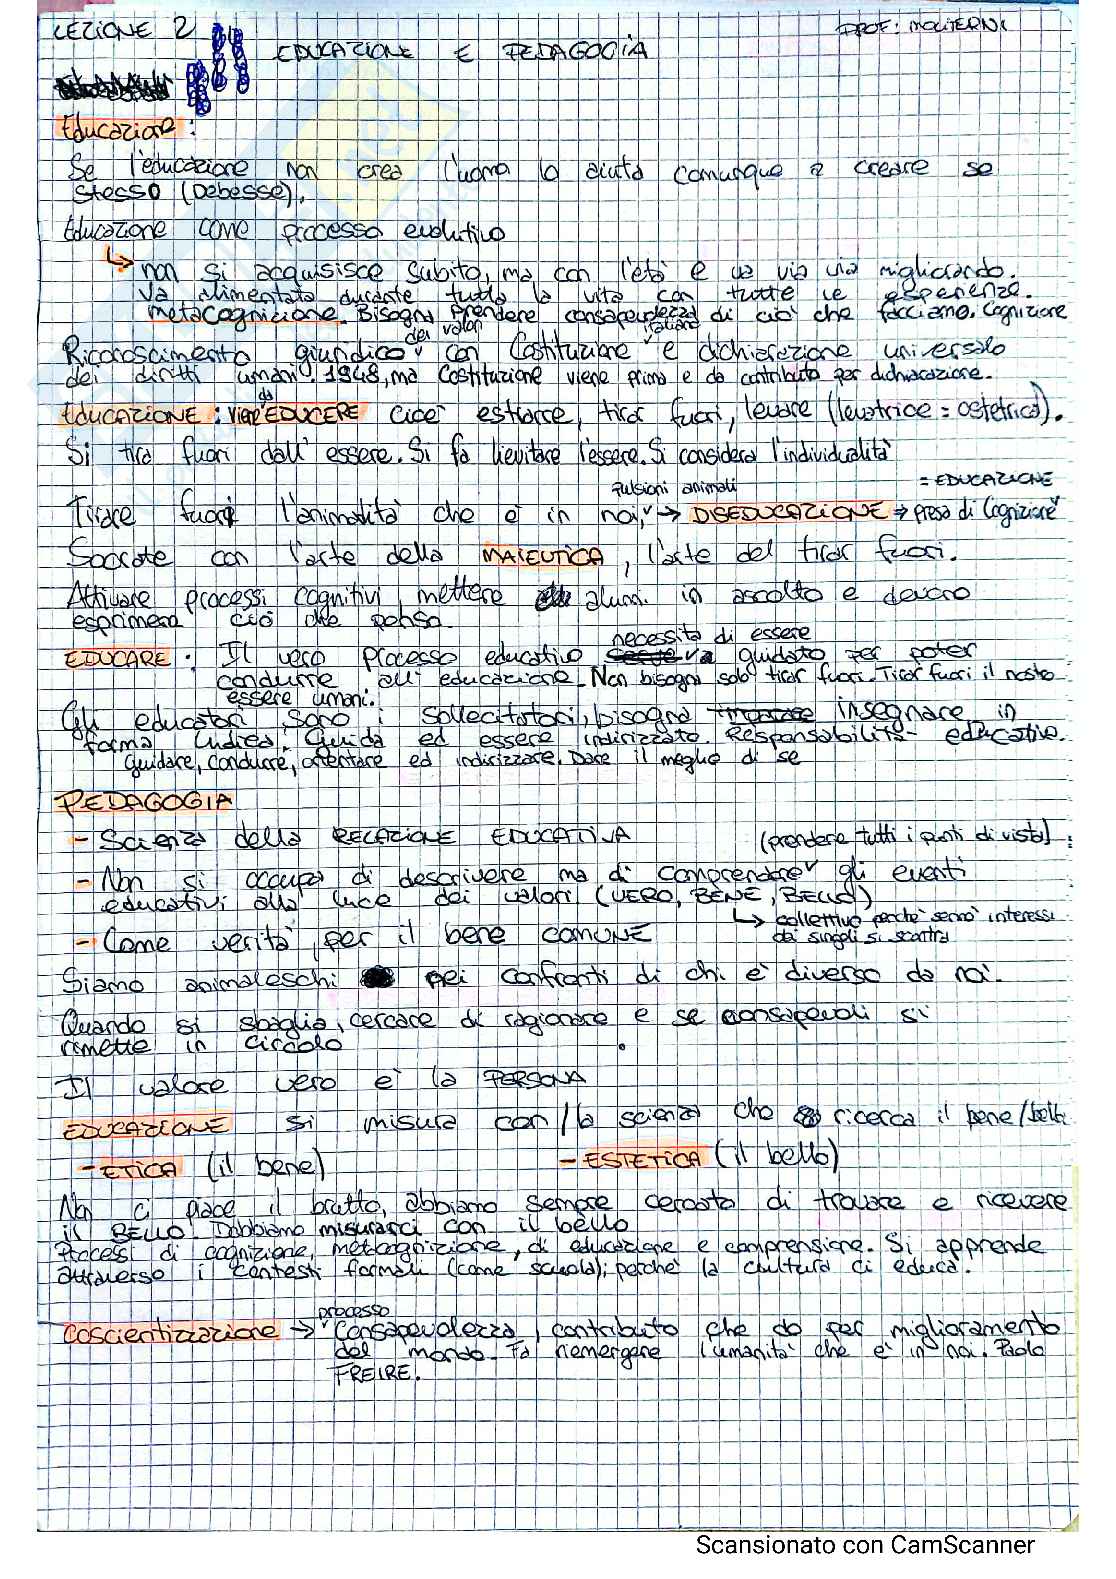 LEZIONE 2
PROF: MOLITERNI
EDUCAZIONE E PEDAGOGIA
Educazione:
Se l'educazione non crea l'uomo lo aiuta comunque a creare se
stesso (Debesse).
Educazione come processo evolutivo
↳ non si acquisisce subito, ma con l'età e va via via migliorando.
Va alimentata durante tutta la vita con tutte le esperienze.
metacognizione. Bisogna prendere consapevolezza di ciò che facciamo. Cognizione
dei valori italiana
Riconoscimento giuridico con Costituzione e dichiarazione universale
dei diritti umani. 1948, ma Costituzione viene prima e da contributo per dichiarazione.
EDUCAZIONE: viene da EDUCERE cioè estrarre, tirar fuori, levare (levatrice = ostetrica).
Si tira fuori dall'essere. Si fa lievitare l'essere. Si considera l'individualità
pulsioni animali = EDUCAZIONE
Tirare fuori l'animalità che è in noi, → DISEDUCAZIONE → presa di Cognizione
Socrate con l'arte della MAIEUTICA, l'arte del tirar fuori.
Attivare processi cognitivi, mettere alunni in ascolto e devono
esprimere ciò che penso.
necessita di essere
EDUCARE: Il vero processo educativo guidato per poter
condurre all'educazione. Non bisogna solo tirar fuori. Tirar fuori il nostro
essere umani.
Gli educatori sono i sollecitatori, bisogna insegnare in
forma ludica. Guida ed essere indirizzato. Responsabilità educativa.
guidare, condurre, orientare ed indirizzare. Dare il meglio di se
PEDAGOGIA
- Scienza della RELAZIONE EDUCATIVA
(prendere tutti i punti di vista)
- Non si occupa di descrivere ma di comprendere gli eventi
educativi alla luce dei valori (VERO, BENE, BELLO)
↳ collettivo perchè sennò interessi
dei singoli si scontra
- Come verità, per il bene comune
Siamo animaleschi nei confronti di chi è diverso da noi.
Quando si sbaglia, cercare di ragionare e se consapevoli si
rimette in circolo.
Il valore vero è la PERSONA
EDUCAZIONE si misura con/la scienza che ricerca il bene/bello
- ETICA (il bene)
- ESTETICA (il bello)
Non ci piace il brutto, abbiamo sempre cercato di trovare e ricevere
il BELLO. Dobbiamo misurarci con il bello
Processi di cognizione, metacognizione, di educazione e comprensione. Si apprende
attraverso i contesti formali (come scuola), perchè la cultura ci educa.
processo
Coscientizzazione → Consapevolezza, contributo che do per miglioramento
del mondo. Fa riemergere l'umanità che è in noi. Paolo
FREIRE.
Scansionato con CamScanner